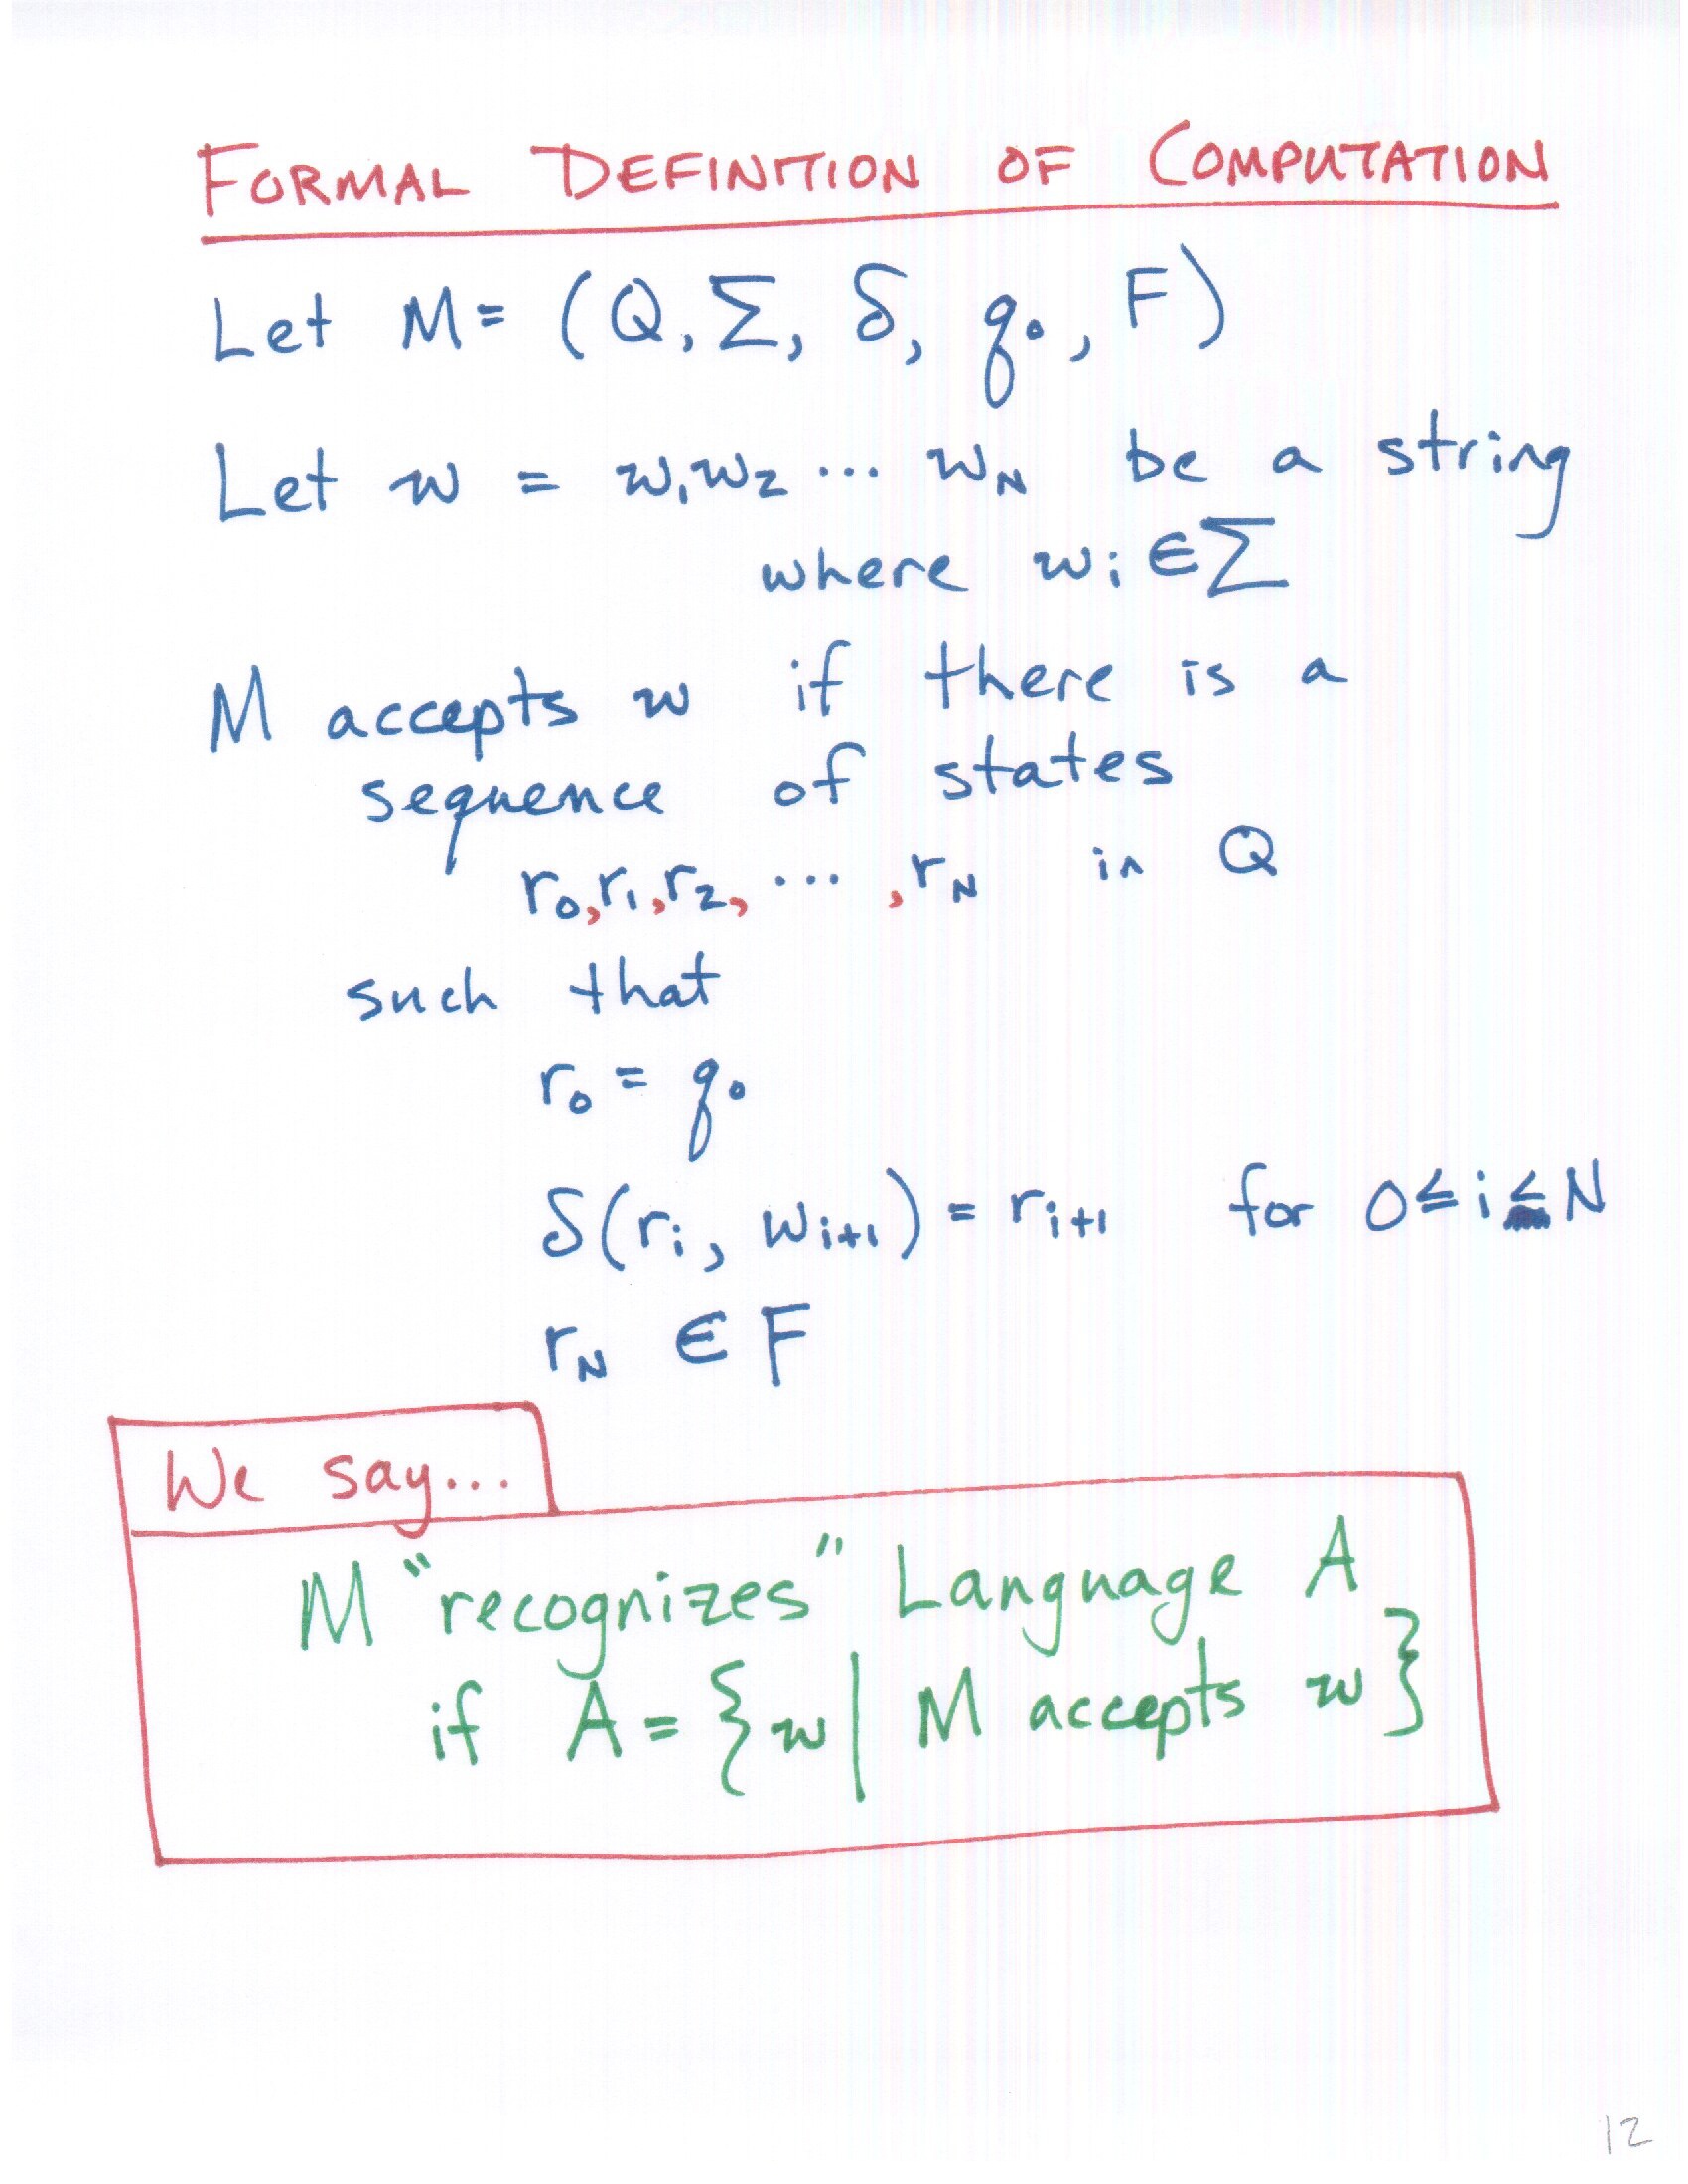 FORMAL DEFINITION OF COMPUTATION
Let M = (Q, Σ, δ, q₀, F)
Let w = w₁w₂ ... w_N be a string
where wᵢ ∈ Σ
M accepts w if there is a
sequence of states
r₀, r₁, r₂, ... , r_N in Q
such that
r₀ = q₀
δ(rᵢ, wᵢ₊₁) = rᵢ₊₁ for 0 ≤ i ≤ N
r_N ∈ F
We say...
M "recognizes" Language A
if A = {w | M accepts w}
12